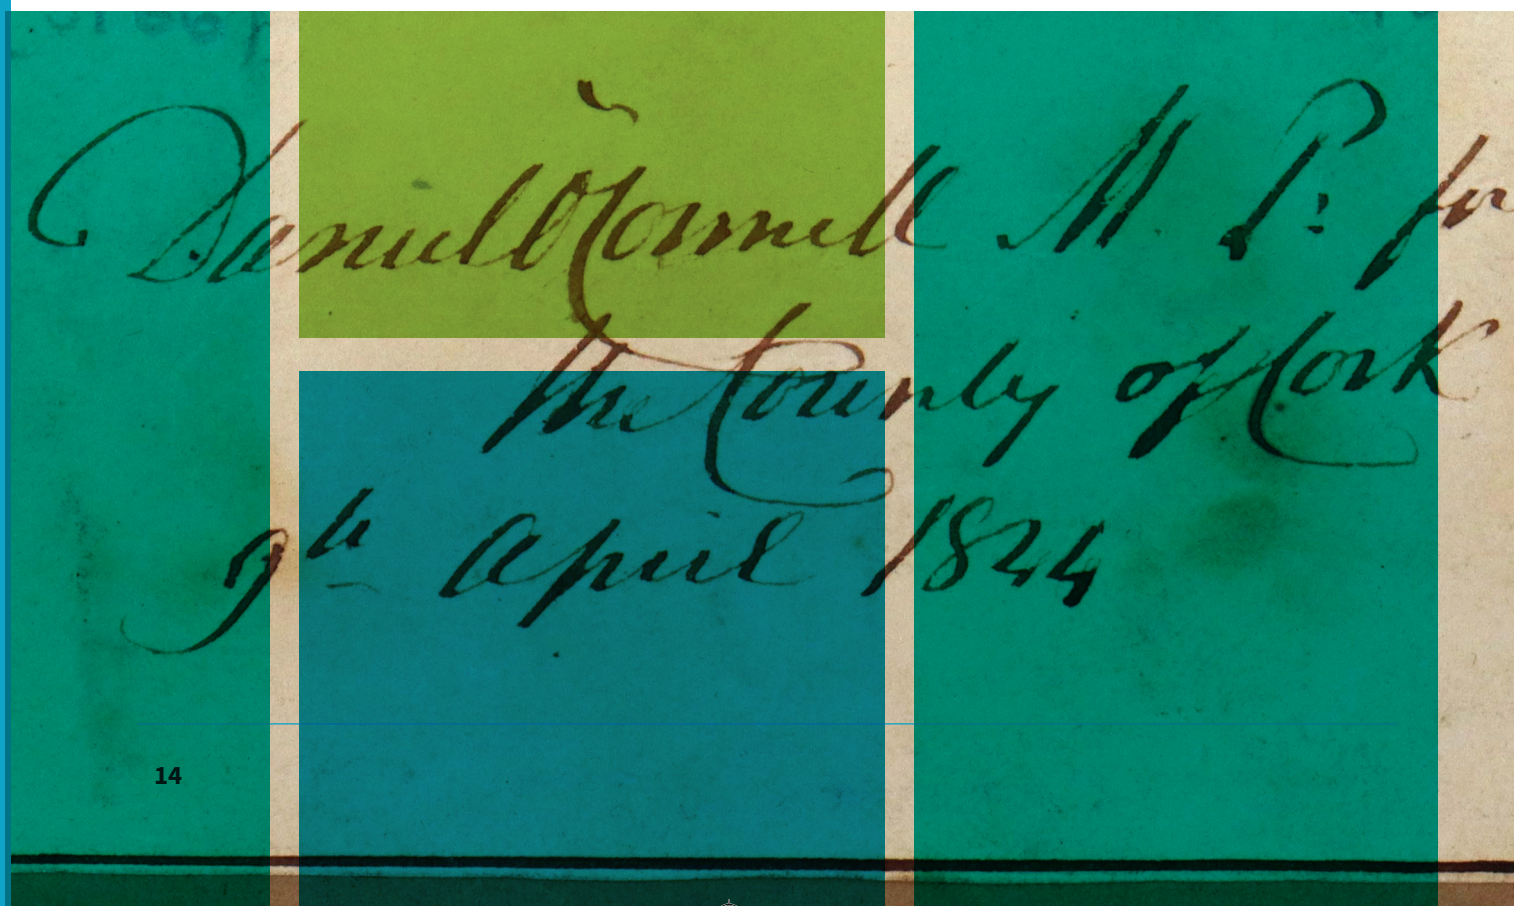 Daniel O'Connell M. P: for
the County of Cork
9th April 1844
14